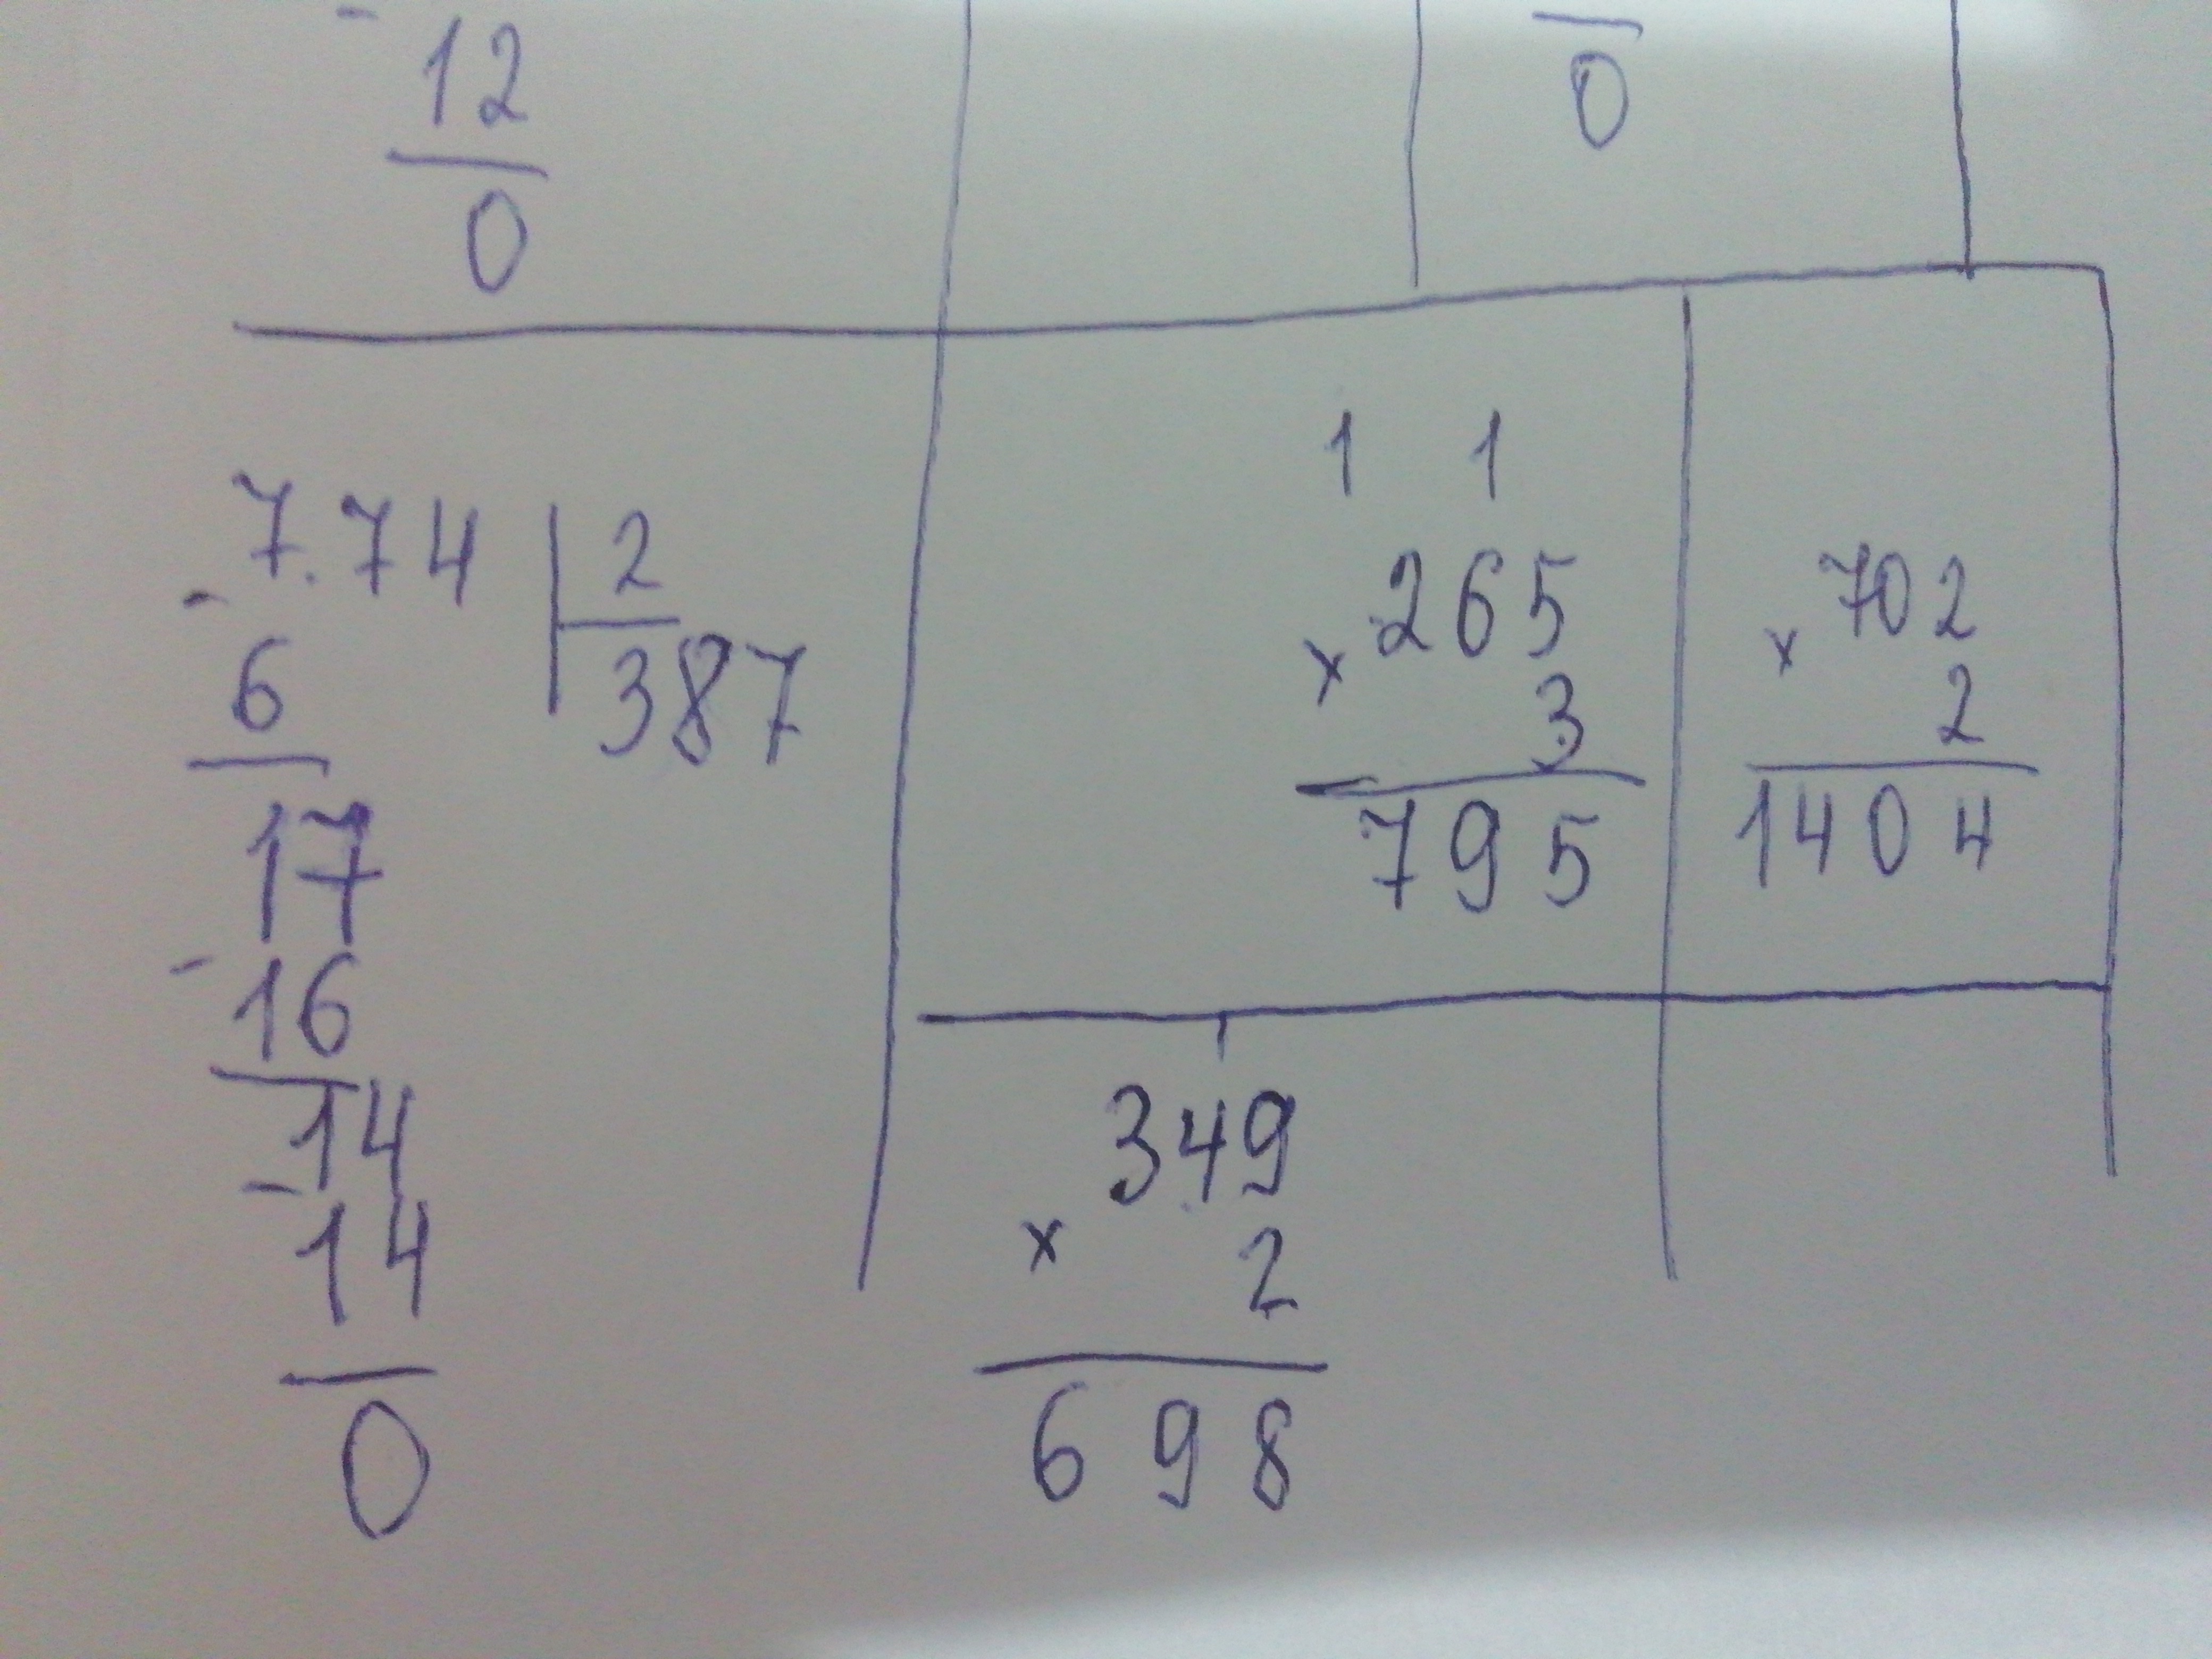 - 12
0
0
7.74 | 2
- 6
387
17
- 16
14
- 14
0
1 1
265
x 3
795
702
x 2
1404
1
349
x 2
698